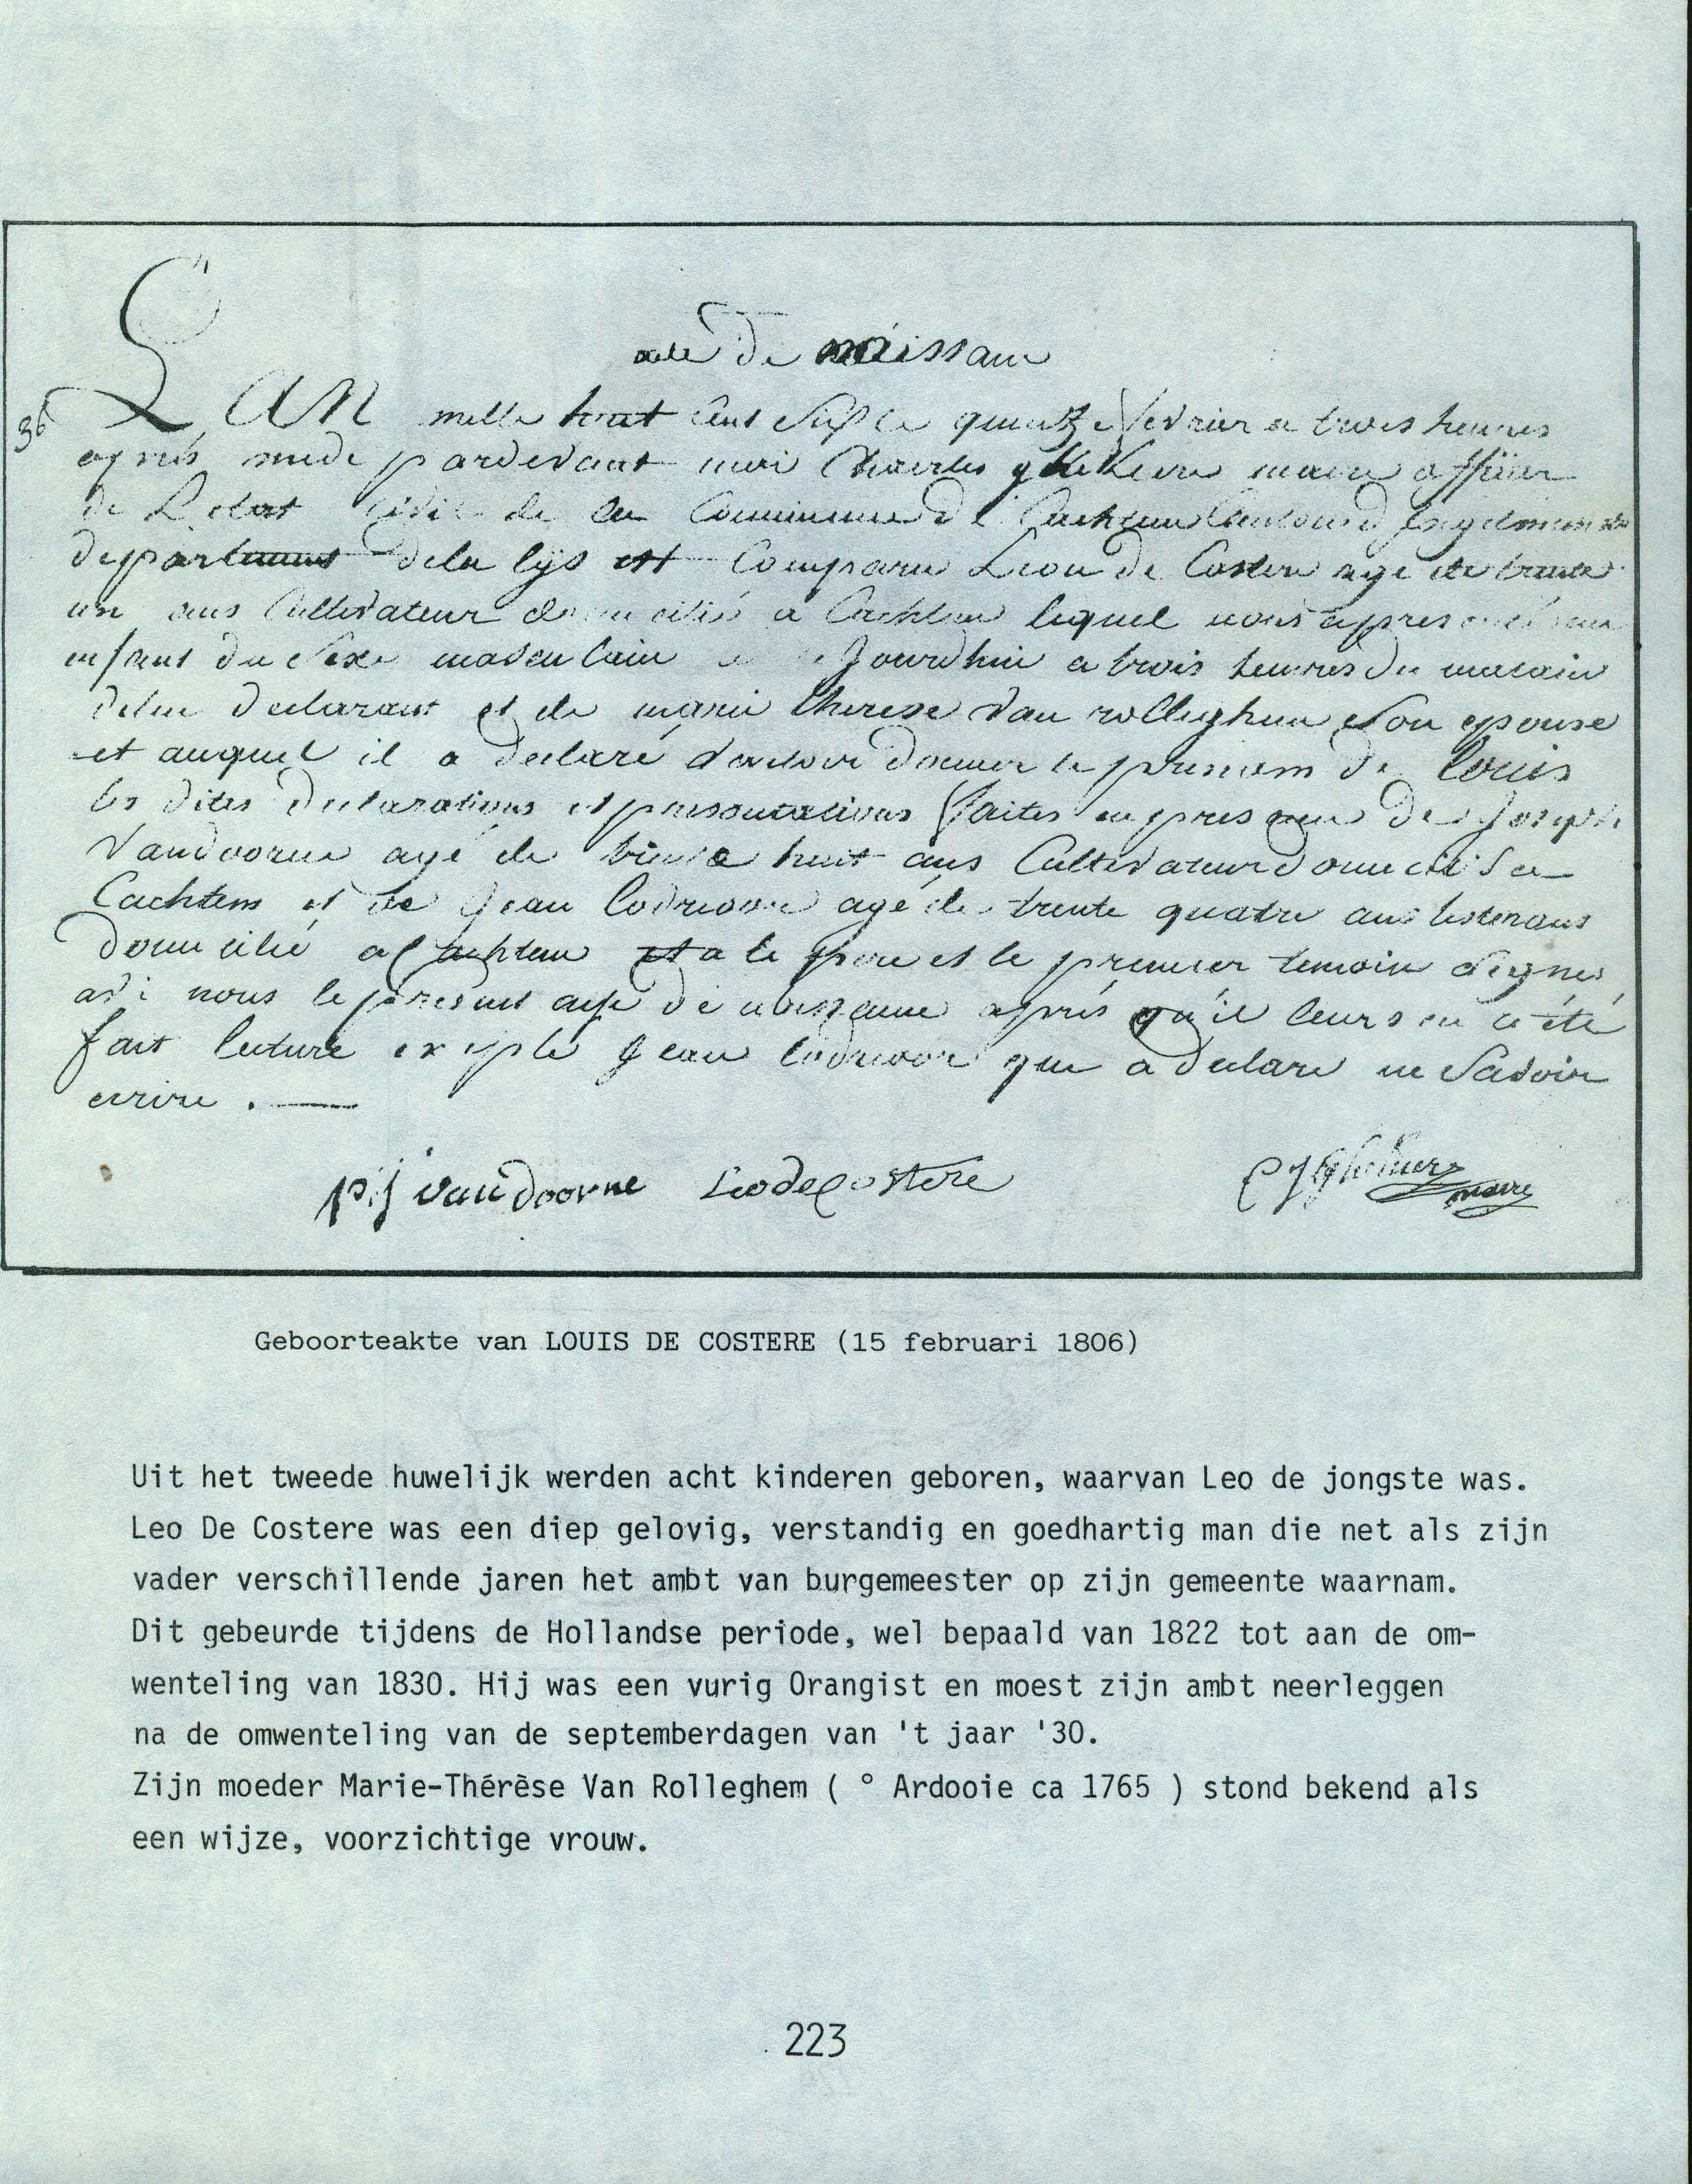 acte de naissance
36
L'AN mille huit cent Six le quinze fevrier a trois heures
après midi pardevant moi Charles maire officier
de L'etat civil de la Commune De Cachtem Canton d'Ingelmunster
departement dela lys est Comparu Leon De Costere agé de trente
un ans Cultivateur domicilié a Cachtem lequel nous a presenté un
enfant du Sexe masculin Jourdhui a trois heures du matin
delui declarant et de marie therese Van rolleghem Son epouse
et auquel il a declaré vouloir donner le prenom de Louis
les dites declarations et presentations faites en presence De Joseph
Vandoorne agé de trente huit ans Cultivateur domicilié a
Cachtem et de Jean agé de trente quatre ans
domicilié a Cachtem et a le pere et le premier temoin Signés
avec nous le present acte de naissance après qu'il leurs en a été
fait lecture Jean qui a declare ne Savoir
ecrire . —
p:j vandoorne Leo de Costere maire
Geboorteakte van LOUIS DE COSTERE (15 februari 1806)
Uit het tweede huwelijk werden acht kinderen geboren, waarvan Leo de jongste was.
Leo De Costere was een diep gelovig, verstandig en goedhartig man die net als zijn
vader verschillende jaren het ambt van burgemeester op zijn gemeente waarnam.
Dit gebeurde tijdens de Hollandse periode, wel bepaald van 1822 tot aan de om-
wenteling van 1830. Hij was een vurig Orangist en moest zijn ambt neerleggen
na de omwenteling van de septemberdagen van 't jaar '30.
Zijn moeder Marie-Thérèse Van Rolleghem ( ° Ardooie ca 1765 ) stond bekend als
een wijze, voorzichtige vrouw.
223